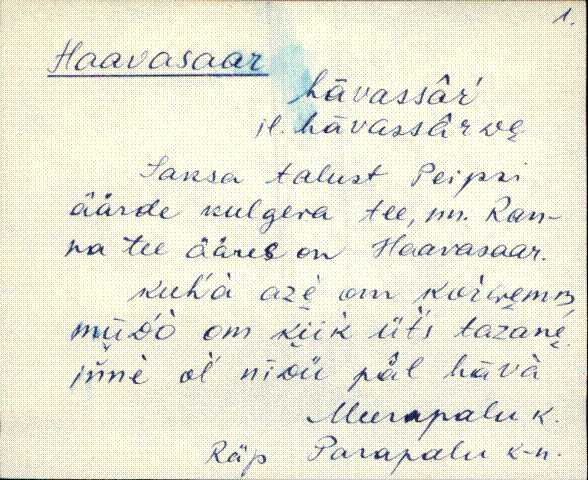 1.
Haavasaar
hāvassâŕ
il. hāvassârwe̮
Saksa talust Peipsi
äärde kulgeva tee, nn. Ran-
na tee ääres on Haavasaar.
kuh́à azè om
mūd́ò om kiik üt́s tazanè
inne oĺ nīdü pǟl hāvà
Meerapalu k.
Räp Parapalu k-n.